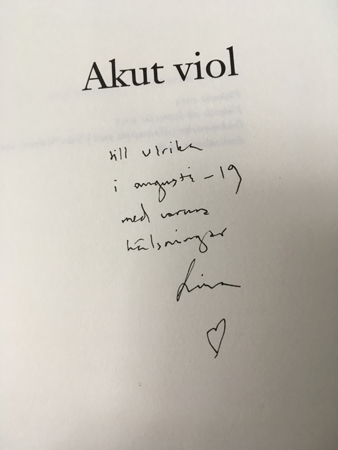 Akut viol
till Ulrika
i augusti -19
med varma
hälsningar